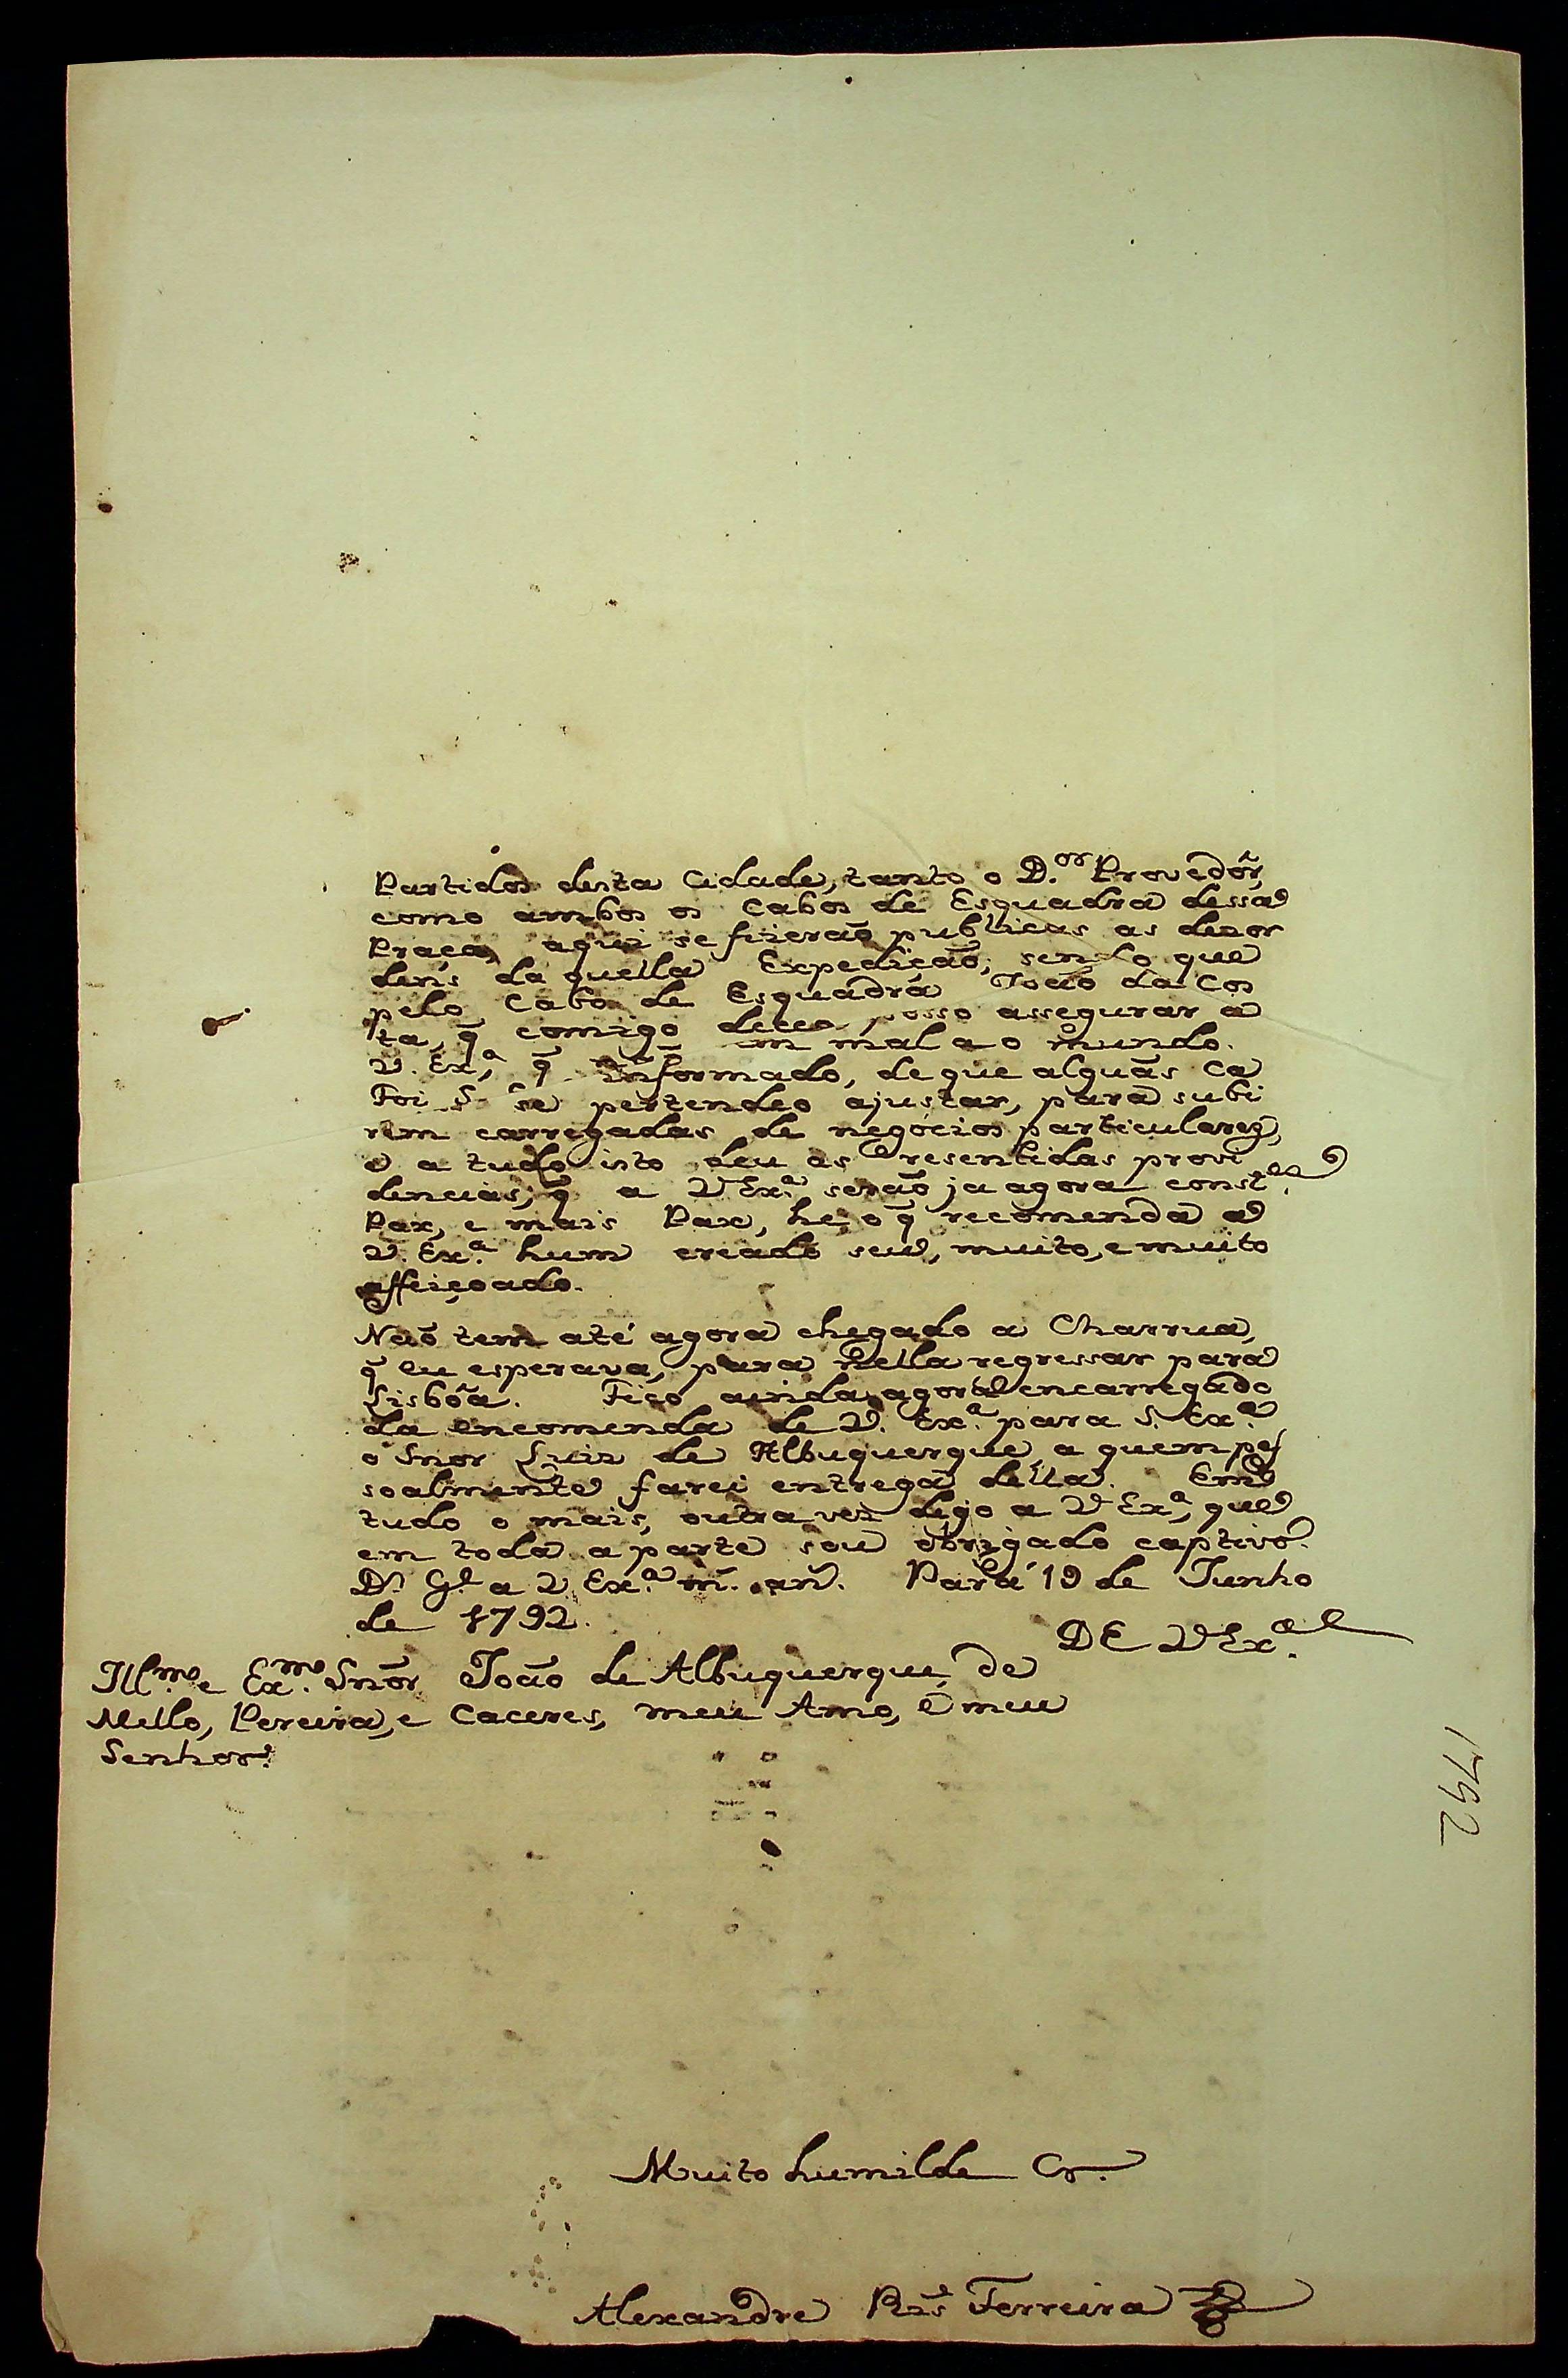 Partidos desta Cidade, tanto o D.or Provedôr,
como ambos os Cabos de Esquadra dessa
Praça, aqui se fizerão publicas as dezor
dens da quella Expedição; sendo que
pelo Cabo de Esquadra João da Cos
ta, q̃ comigo deceo, posso assegurar a
V. Ex.ª, q̃ mal ao mundo.
Foi S. informado, de que algũas Ca
se pertendeo ajustar, para subi
rem carregadas de negócios particulares,
e a tudo isto deu as resentidas provi
dencias, q̃ a V Ex.ª serão ja agora const.es
Pax, e mais Pax, he o q̃ recomenda a
V. Ex.ª hum creado seu, muito, e muito
affeiçoado.
Não tem até agora chegado a Charrua,
q̃ eu esperava, para nella regressar para
Lisbôa. Fico ainda agora encarregado
da encomenda de V. Ex.ª para S. Ex.ª
o Snor Luiz de Albuquerque, a quem pes
soalmente farei entrega della. Em
tudo o mais, outra vez digo a V Ex.ª, que
em toda a parte sou obrigado captivo.
D.s G.e a V. Ex.ª m.s an.s Pará 19 de Junho
de 1792.
DE V Ex.ª
Ill.mo e Ex.mo Snõr João de Albuquerque de
Mello, Pereira, e Caceres, meu Amo, e meu
Senhor.
1792
Muito humilde Cr.
Alexandre Rz̃ Ferreira